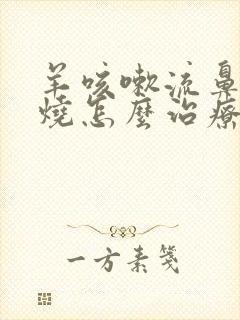 羊咳嗽流鼻
燒怎麼治療
一方素箋